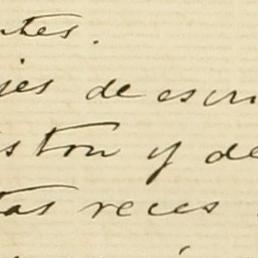 ntes.
jes de escri
ston y de
tas reces